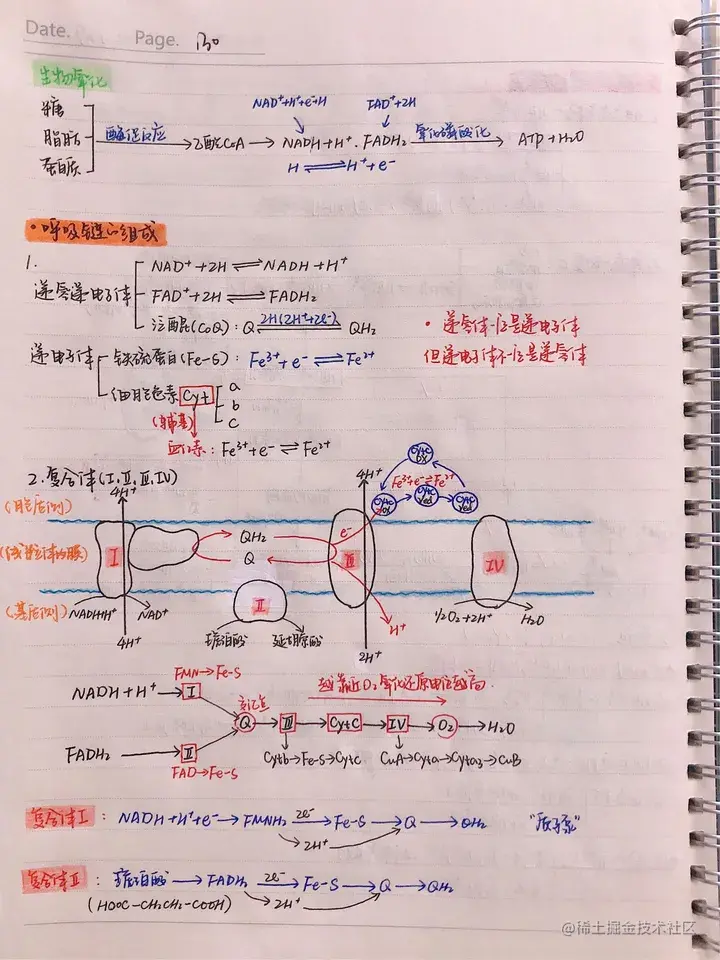 Date.
Page. 130
生物氧化
NAD⁺+H⁺+e⁻+H FAD⁺+2H
糖
脂肪 酶促反应 → 乙酰CoA → NADH+H⁺. FADH₂ 氧化磷酸化 → ATP + H₂O
蛋白质
H ⇌ H⁺+e⁻
·呼吸链的组成
1.
NAD⁺+2H ⇌ NADH+H⁺
递氢递电子体 FAD⁺+2H ⇌ FADH₂
泛醌(CoQ): Q 2H(2H⁺+2e⁻) ⇌ QH₂
• 递氢体一定是递电子体
但递电子体不一定是递氢体
递电子体 铁硫蛋白(Fe-S): Fe³⁺+e⁻ ⇌ Fe²⁺
细胞色素 Cyt a
b
c
(辅基)
血红素: Fe³⁺+e⁻ ⇌ Fe²⁺
2.复合体(I,II,III,IV)
4H⁺ 4H⁺
Cytc ox
Fe³⁺+e⁻ ⇌ Fe²⁺
Cytc ox → Cytc red → Cytc red
(胞底侧)
(线粒体内膜)
(基底侧)
I QH₂ e⁻ III IV
Q
II
NADH+H⁺ NAD⁺
琥珀酸 延胡索酸
H⁺
½O₂+2H⁺ H₂O
4H⁺ 2H⁺
FMN→Fe-S
越靠近O₂氧化还原电位越高
NADH+H⁺ → I
交汇点
Q → III → Cyt C → IV → O₂ → H₂O
FADH₂ → II
Cytb→Fe-S→Cytc CuA→Cyta→Cyta₃→CuB
FAD→Fe-S
复合体I: NADH+H⁺+e⁻ → FMNH₂ 2e⁻ → Fe-S → Q → QH₂ "质子泵"
→ 2H⁺
复合体II: 琥珀酸 → FADH₂ 2e⁻ → Fe-S → Q → QH₂
(HOOC-CH₂CH₂-COOH) → 2H⁺
@稀土掘金技术社区